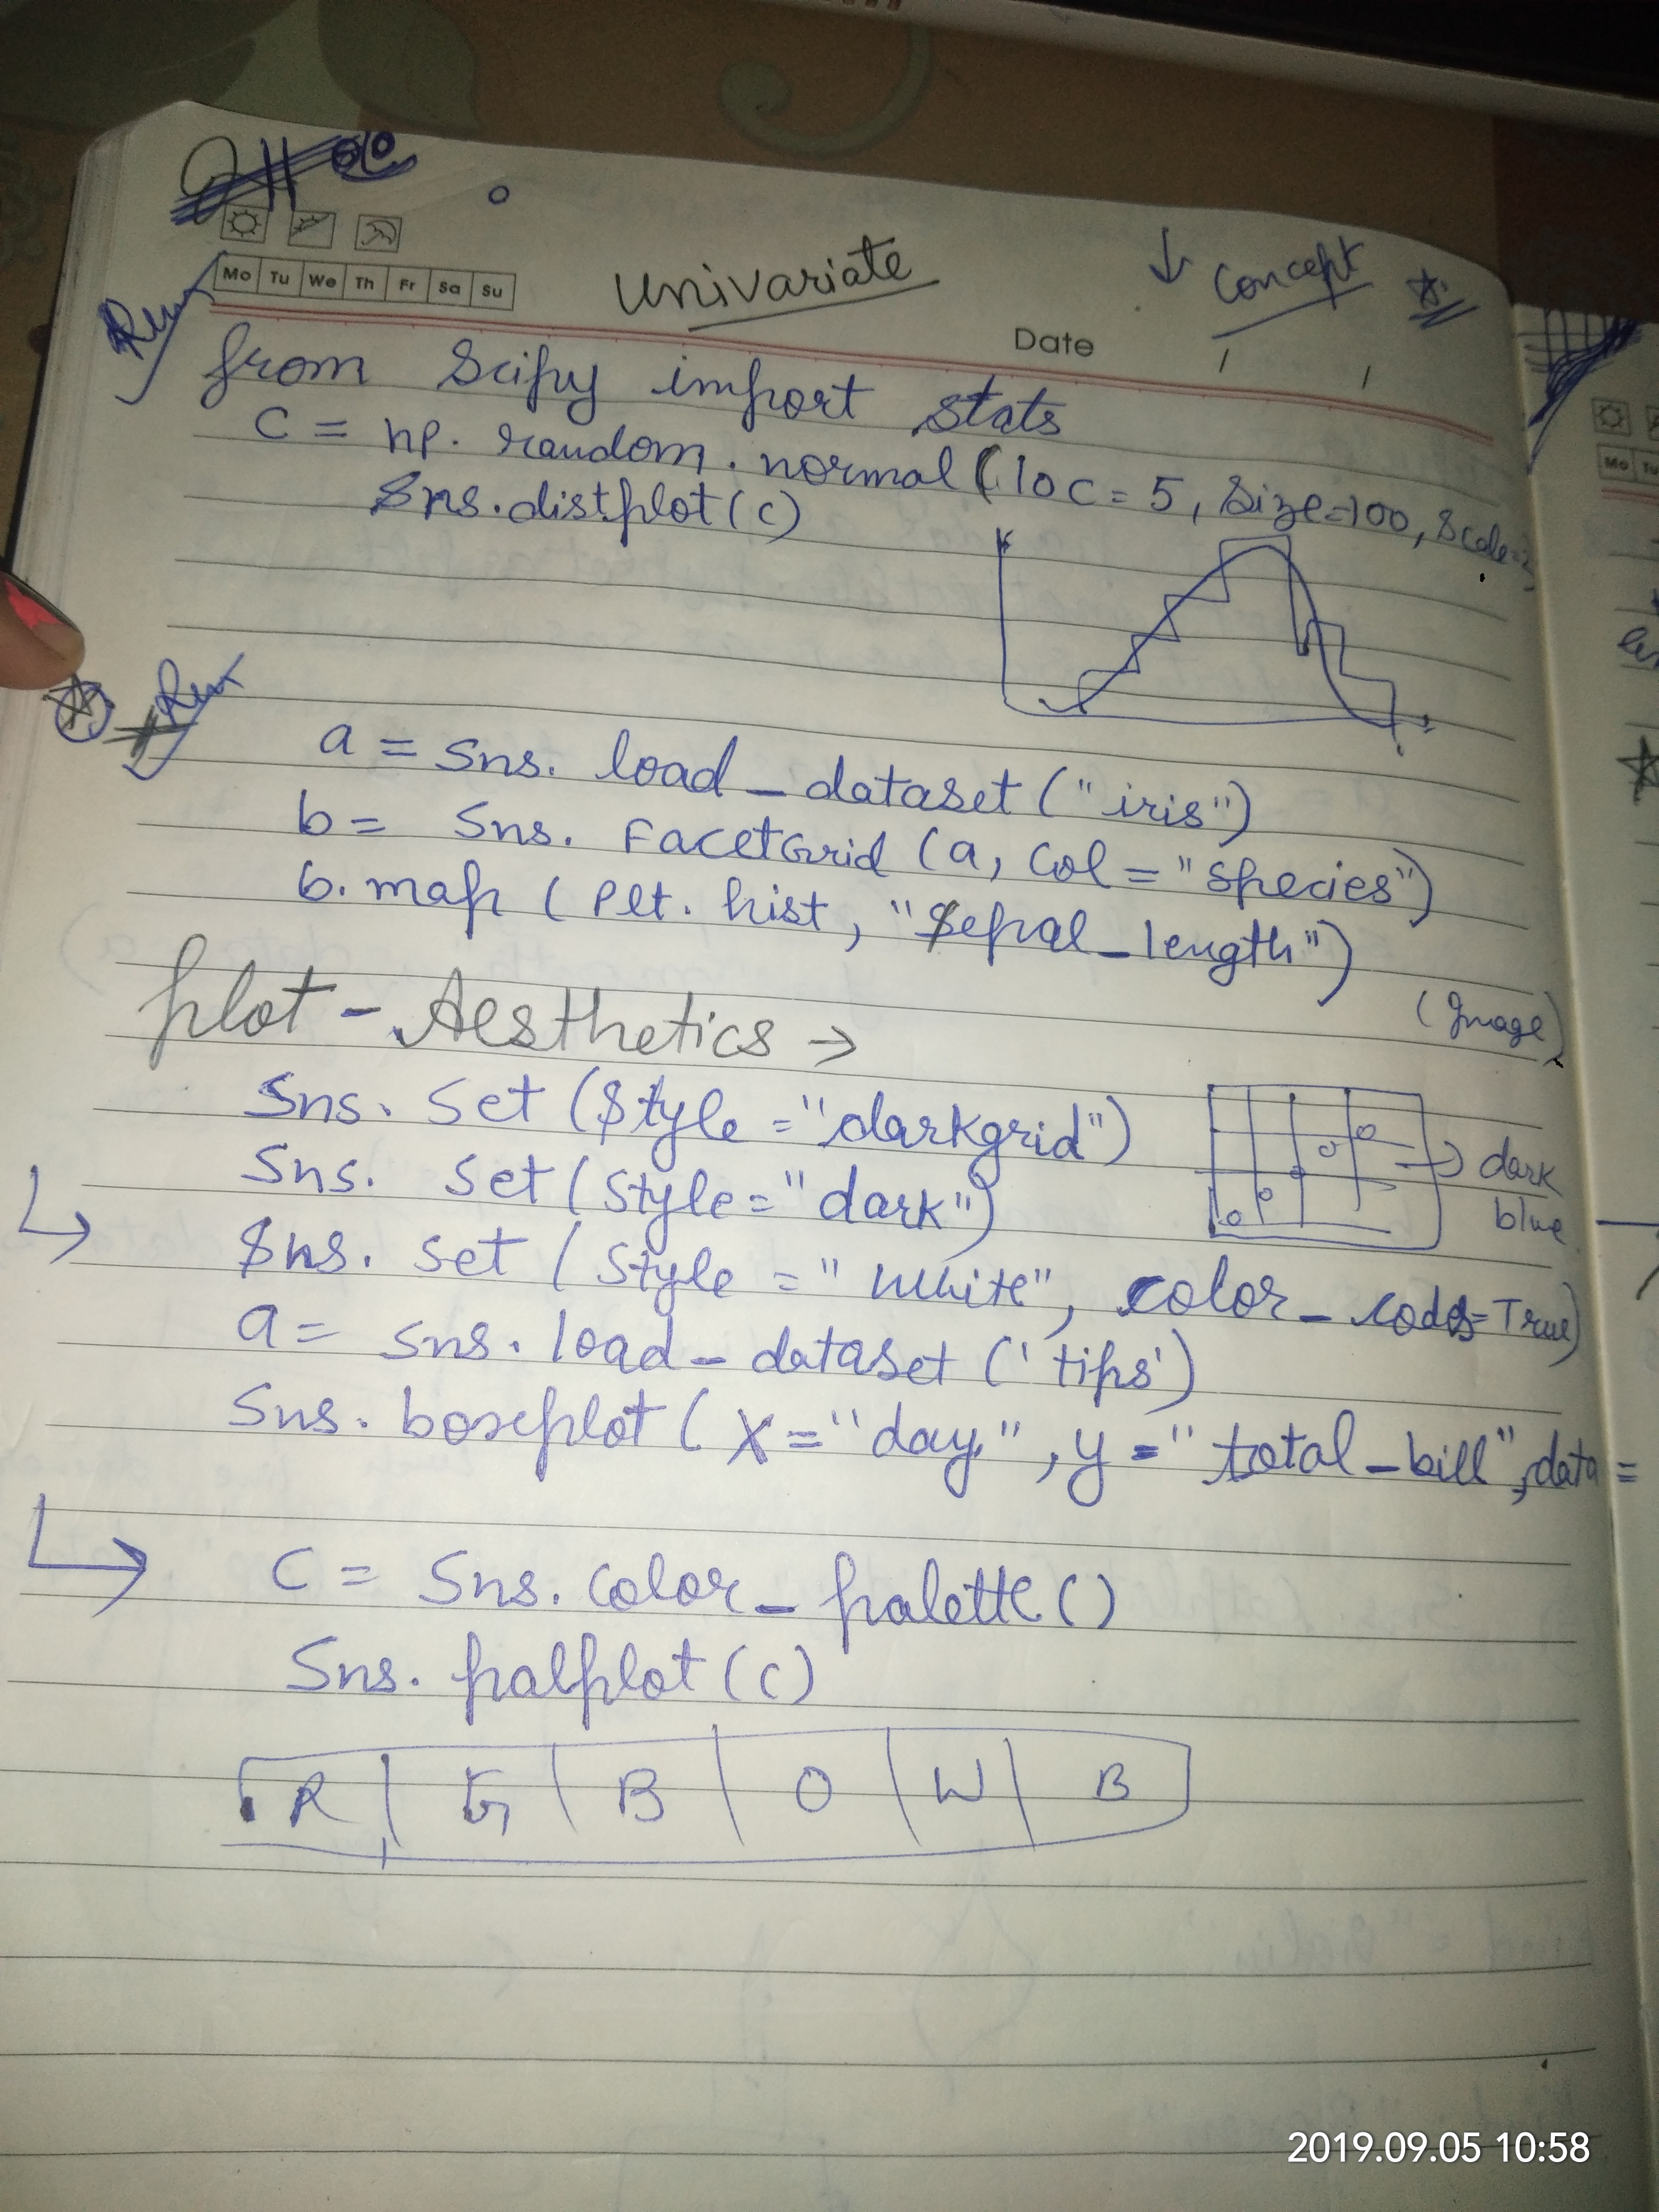 Mo Tu We Th Fr Sa Su
Univariate
↓ Concept
Date / /
from Scipy import stats
C = np. random. normal (loc = 5, Size=100, Scale=
Sns.distplot(c)
a = Sns. load_dataset ("iris")
b = Sns. FacetGrid (a, Col = "Species")
b. map ( Plt. hist, "Sepal_length")
(Image)
plot - Aesthetics →
Sns. Set (Style ="darkgrid")
Sns. Set (Style="dark")
→ dark
blue
Sns. Set ( Style = "White", color_codes=True)
a = Sns. load_dataset ('tips')
Sns. boxplot ( X="day", y="total_bill", data =
C = Sns. Color_palette()
Sns. palplot(c)
R G B O W B
Mo Tu
2019.09.05 10:58